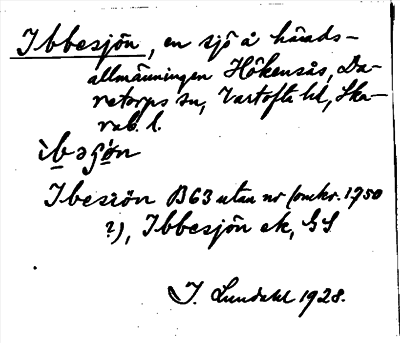 Ibbesjön, en sjö å härads-
allmänningen Hökensås, Da-
retorps sn, Vartofta hd, Ska-
rab. l.
Ibesiön B63 utan nr (omkr. 1750
?), Ibbesjön ek, GS
J. Lundahl 1928.